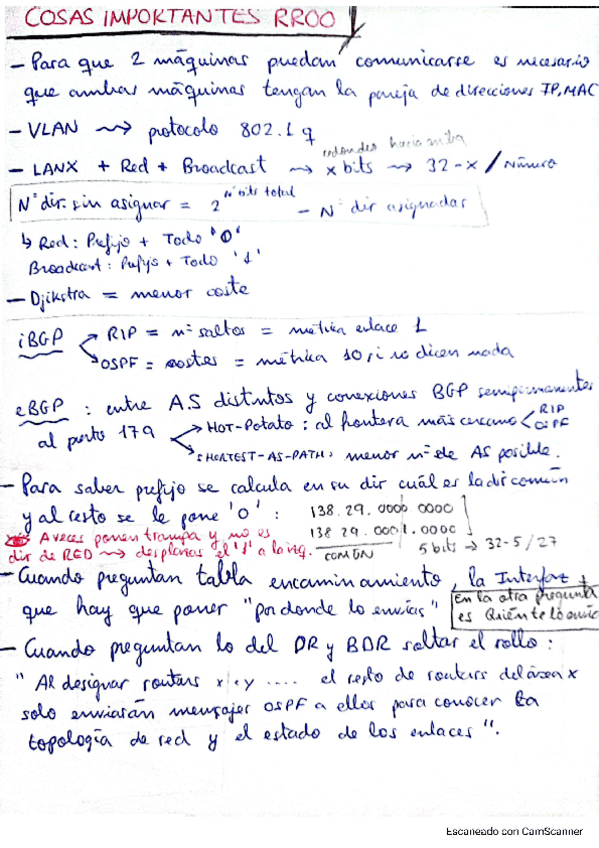 COSAS IMPORTANTES RROO
- Para que 2 máquinas puedan comunicarse es necesario
que ambas máquinas tengan la pareja de direcciones IP, MAC
- VLAN ⟿ protocolo 802.1 q
redondeo hacia arriba
- LANX + Red + Broadcast ⟿ x bits ⟿ 32-x / Número
Nº dir. sin asignar = 2^(nº bits total) - Nº dir asignadas
↳ Red: Prefijo + Todo '0'
Broadcast: Prefijo + Todo '1'
- Djikstra = menor coste
iBGP RIP = nº saltos = métrica enlace 1
OSPF = costes = métrica 10, si no dicen nada
eBGP : entre A.S distintos y conexiones BGP semipermanentes
al puerto 179 HOT-Potato: al frontera más cercano RIP OSPF
SHORTEST-AS-PATH: menor nº de AS posible.
- Para saber prefijo se calcula en su dir cuál es la dir común
y al resto se le pone '0' : 138.29.0000 0000
138.29.0001.0000
A veces ponen trampa y no es
dir de RED ⟿ desplazas el '1' a la izq. COMÚN 5 bits → 32-5 / 27
- Cuando preguntan tabla encaminamiento, la Interfaz
que hay que poner "por donde lo envías"
En la otra pregunta
es Quién te lo envía
- Cuando preguntan lo del DR y BDR soltar el rollo:
"Al designar routers x, y .... el resto de routers del área x
solo enviarán mensajes OSPF a ellos para conocer la
topología de red y el estado de los enlaces".
Escaneado con CamScanner